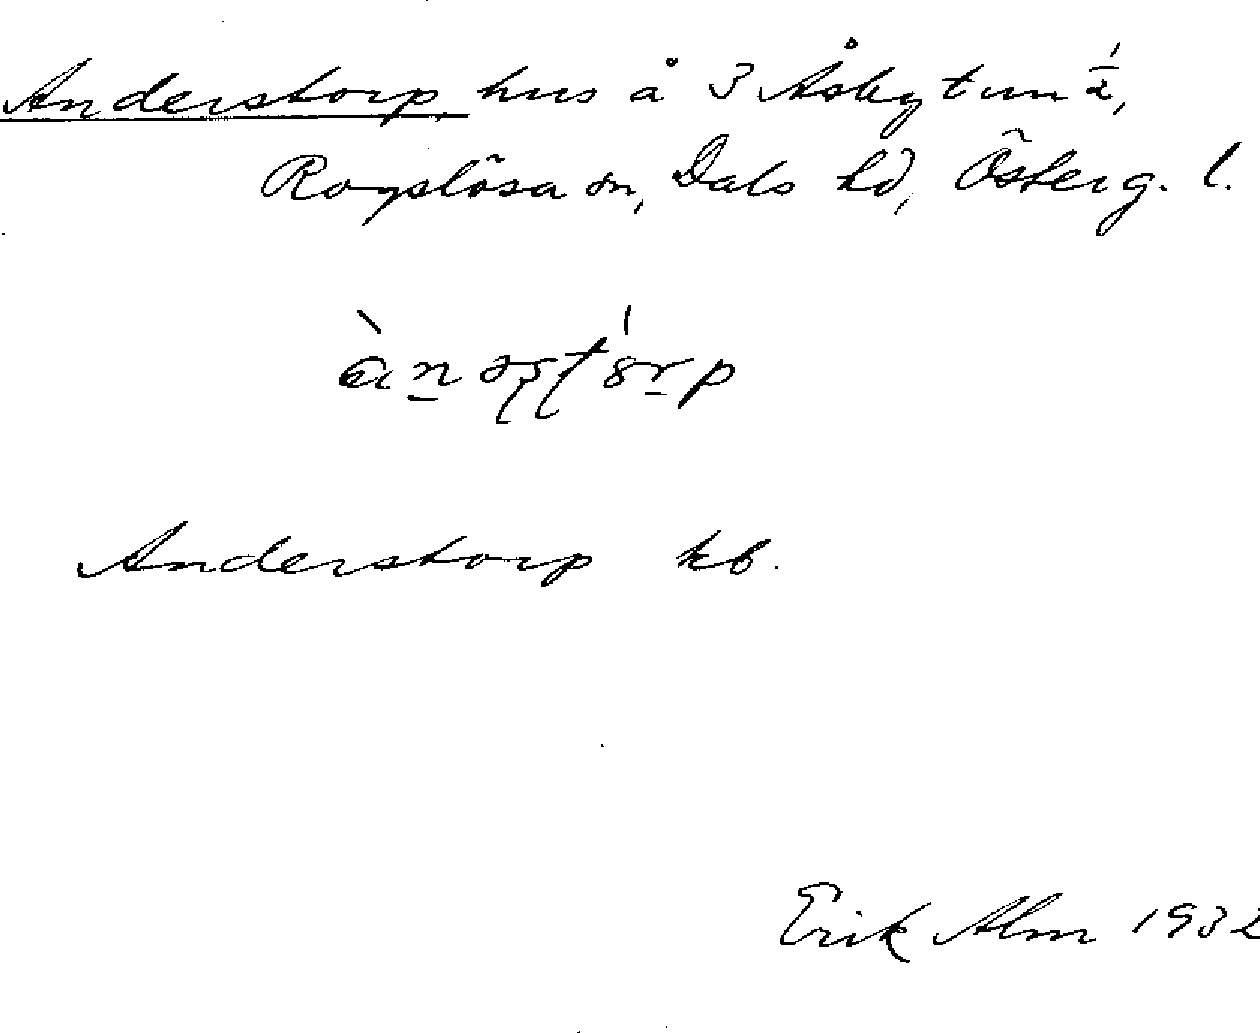 Anderstorp, hus å 3 Åsby tum ½,
Rogslösa sn, Dals hd, Österg. l.
Anderstorp kb.
Erik Alm 1932